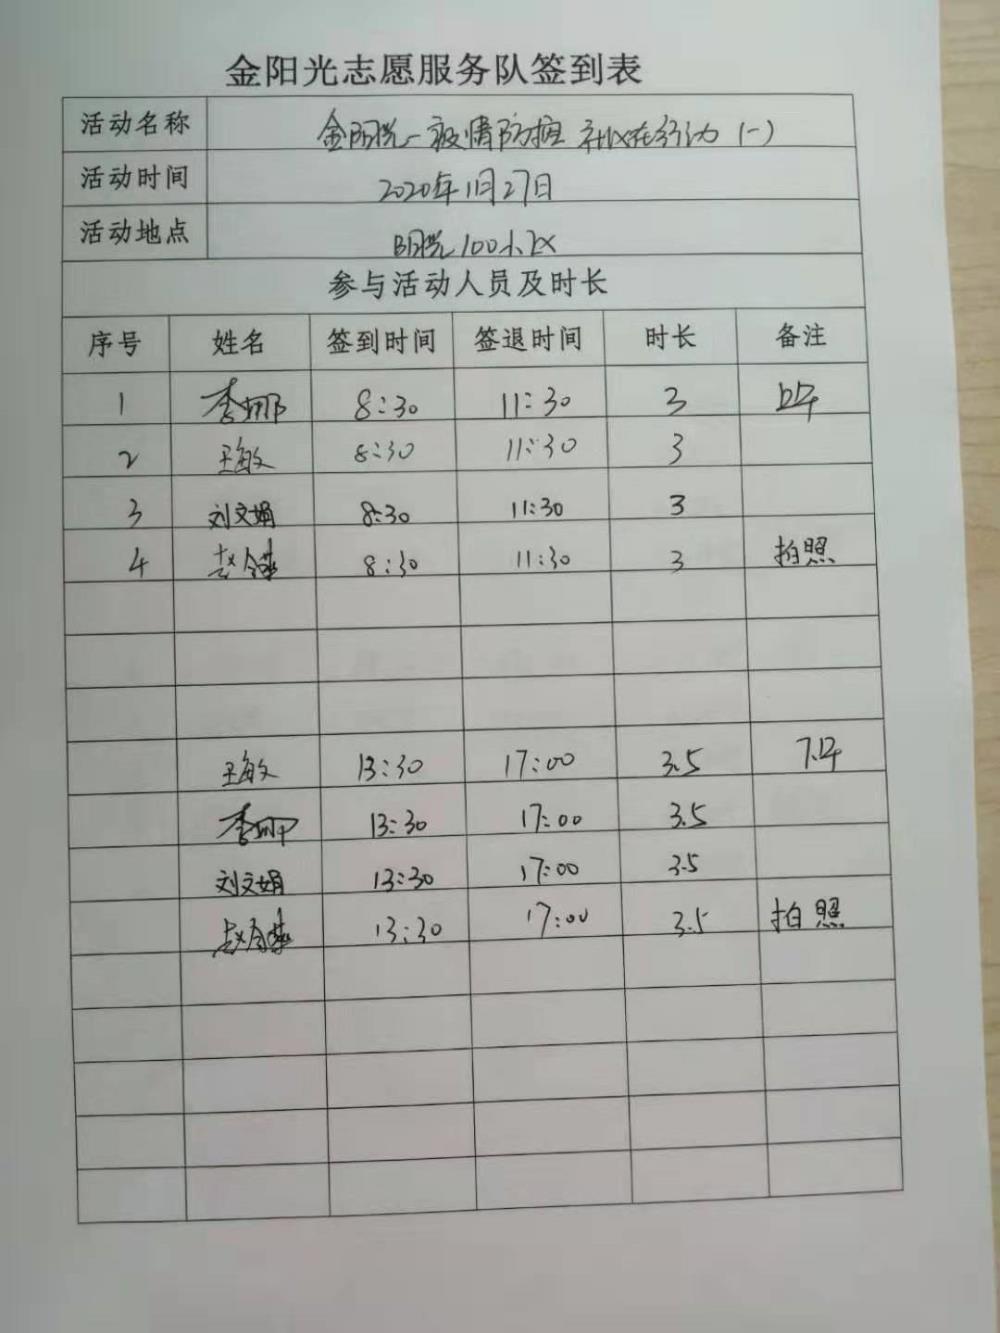 金阳光志愿服务队签到表
活动名称 金阳光一疫情防控 社区在行动（一）
活动时间 2020年1月27日
活动地点 阳光100小区
参与活动人员及时长
序号 姓名 签到时间 签退时间 时长 备注
1 李娜 8:30 11:30 3 上午
2 王敏 8:30 11:30 3
3 刘文娟 8:30 11:30 3
4 赵 8:30 11:30 3 拍照
王敏 13:30 17:00 3.5 下午
李娜 13:30 17:00 3.5
刘文娟 13:30 17:00 3.5
赵 13:30 17:00 3.5 拍照